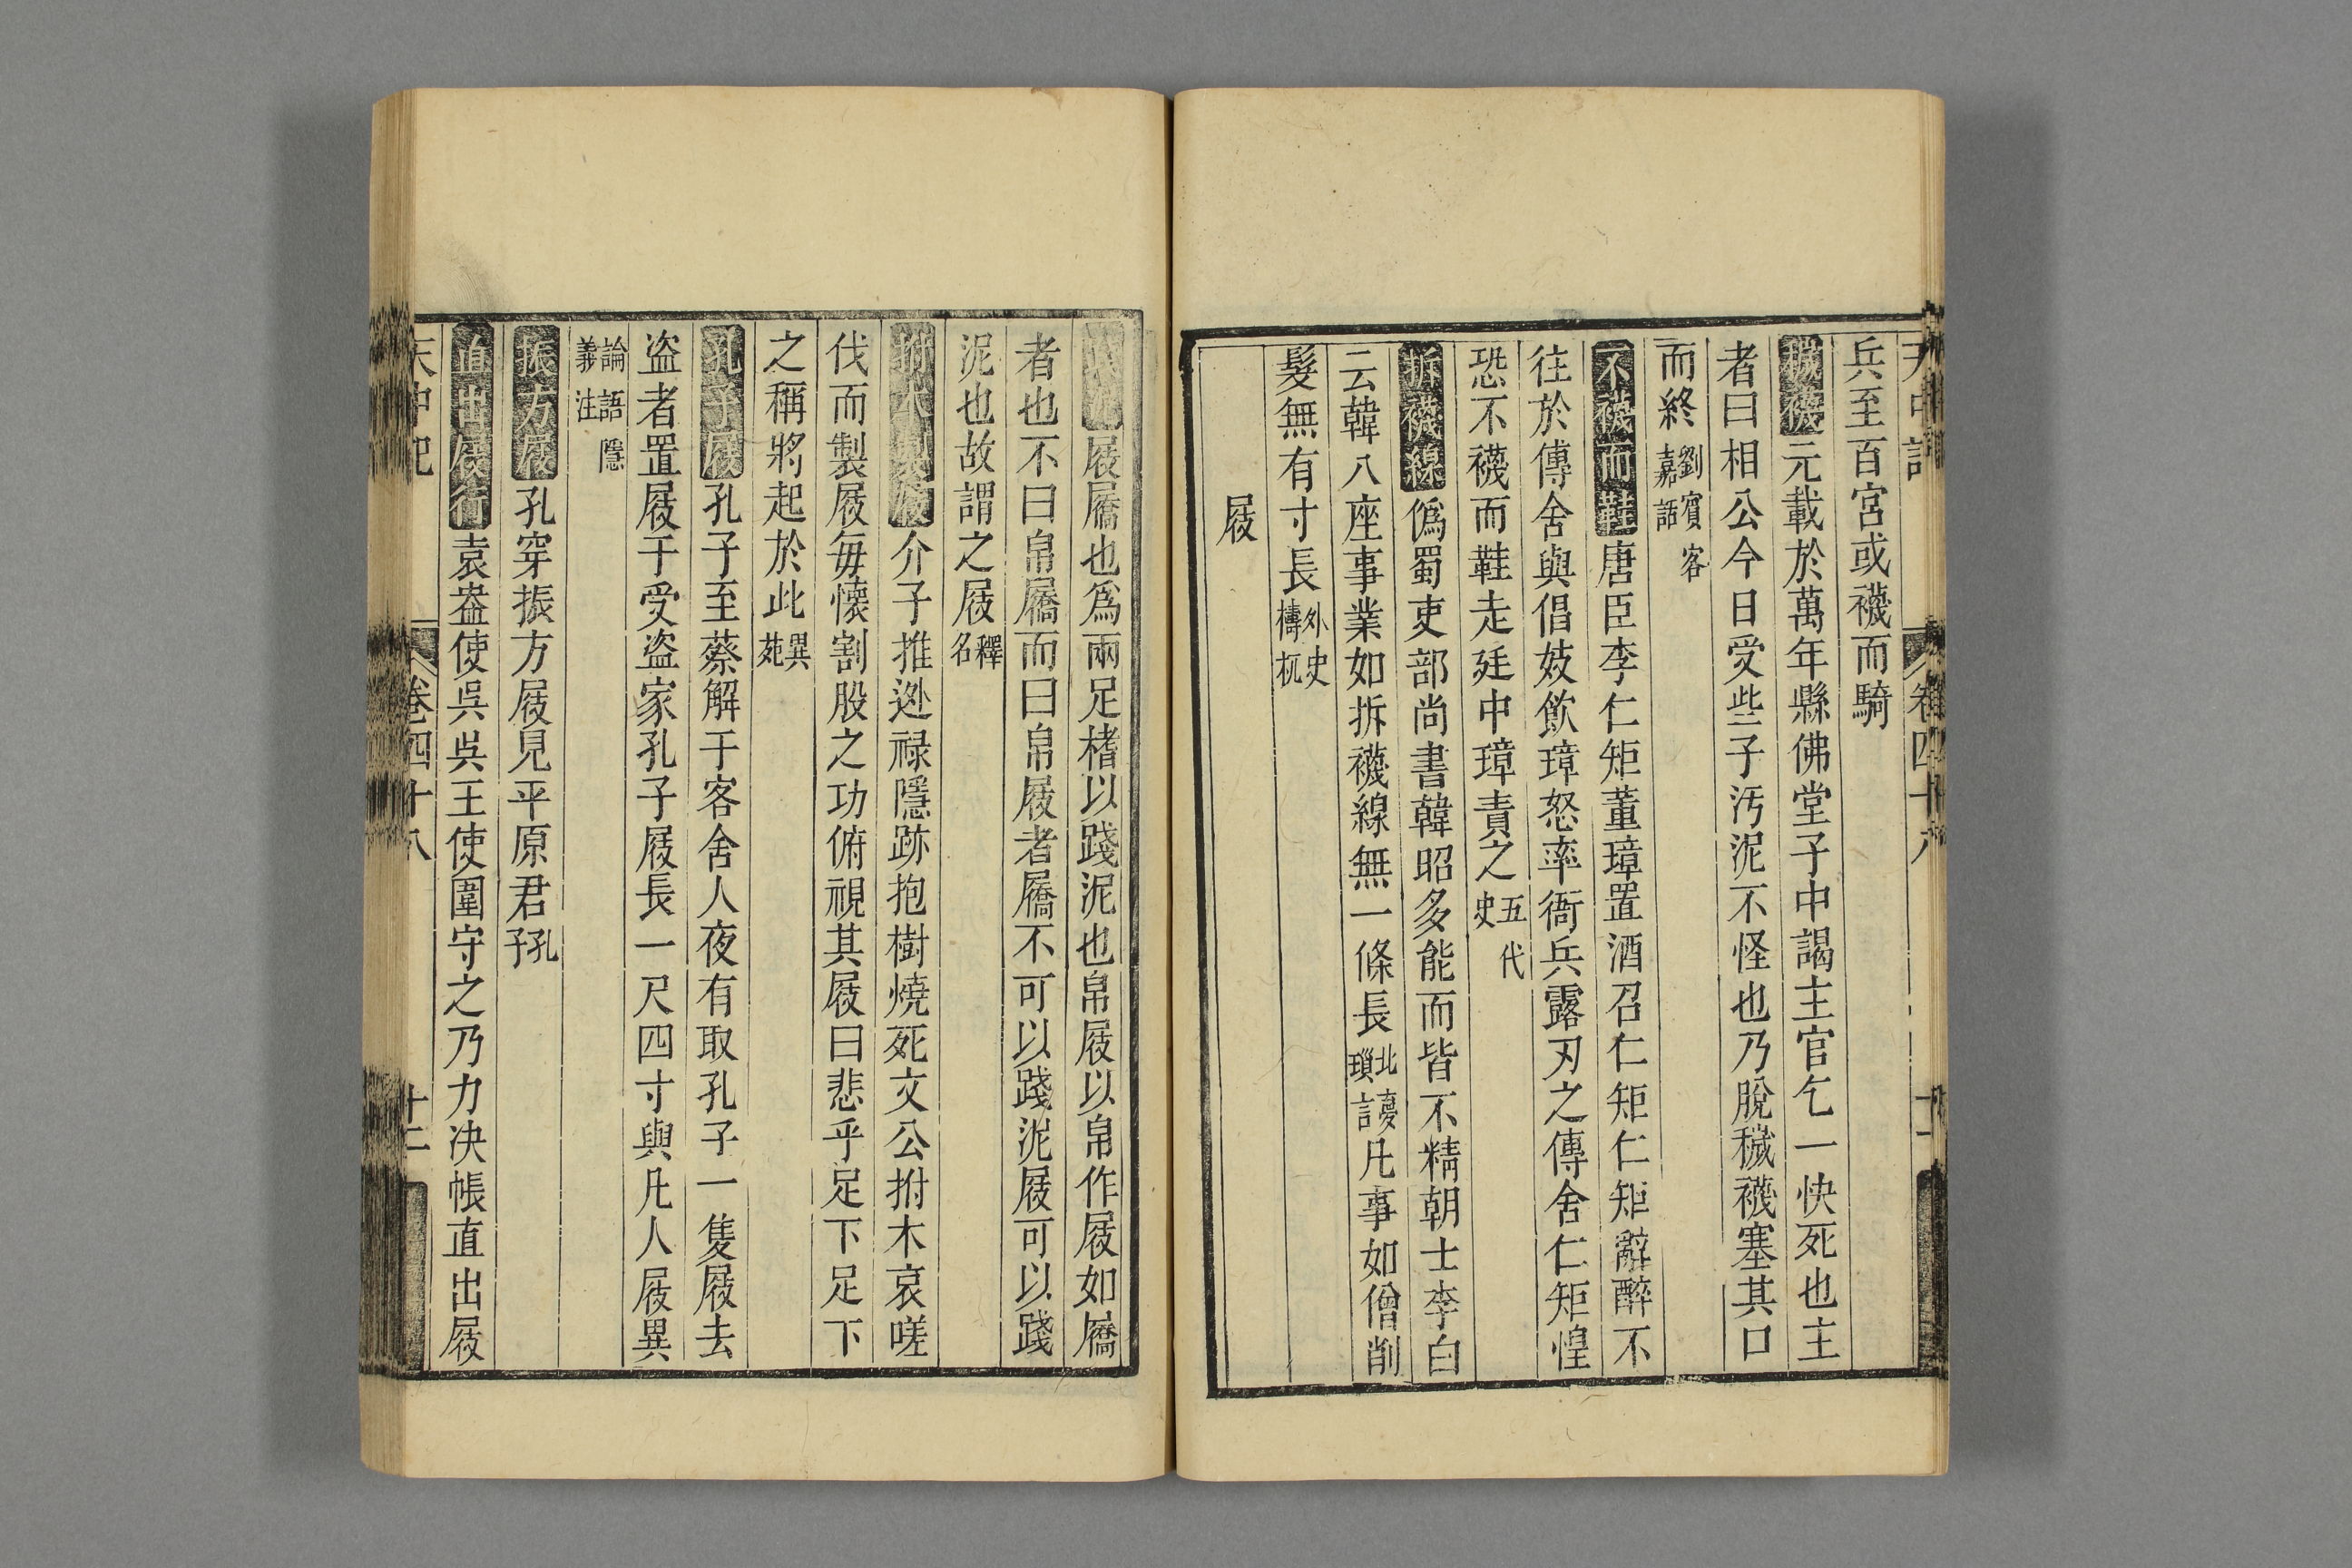 兵至百宮或襪而騎
穢襪元載於萬年縣佛堂子中謁主官乞一快死也主
者曰相公今日受些子汚泥不怪也乃脫穢襪塞其口
而終劉賓客嘉話
不襪而鞋唐臣李仁矩董璋置酒召仁矩仁矩辭醉不
往於傳舍與倡妓飲璋怒率衙兵露刃之傳舍仁矩惶
恐不襪而鞋走廷中璋責之五代史
拆襪線僞蜀吏部尚書韓昭多能而皆不精朝士李白
云韓八座事業如拆襪線無一條長北夢瑣言凡事如僧削
髮無有寸長外史檮杌
屐
屐屩也爲兩足榰以踐泥也帛屐以帛作屐如屩
者也不曰帛屩而曰帛屐者屩不可以踐泥屐可以踐
泥也故謂之屐釋名
拊木製屐介子推逃祿隱跡抱樹燒死文公拊木哀嗟
伐而製屐每懷割股之功俯視其屐曰悲乎足下足下
之稱將起於此異苑
孔子屐孔子至蔡解于客舍人夜有取孔子一隻屐去
盗者置屐于受盗家孔子屐長一尺四寸與凡人屐異
論語隱義注
振方屐孔穿振方屐見平原君孔子
直出屐行袁盎使吳吳王使圍守之乃力決帳直出屐
天中記 卷四十八 十二